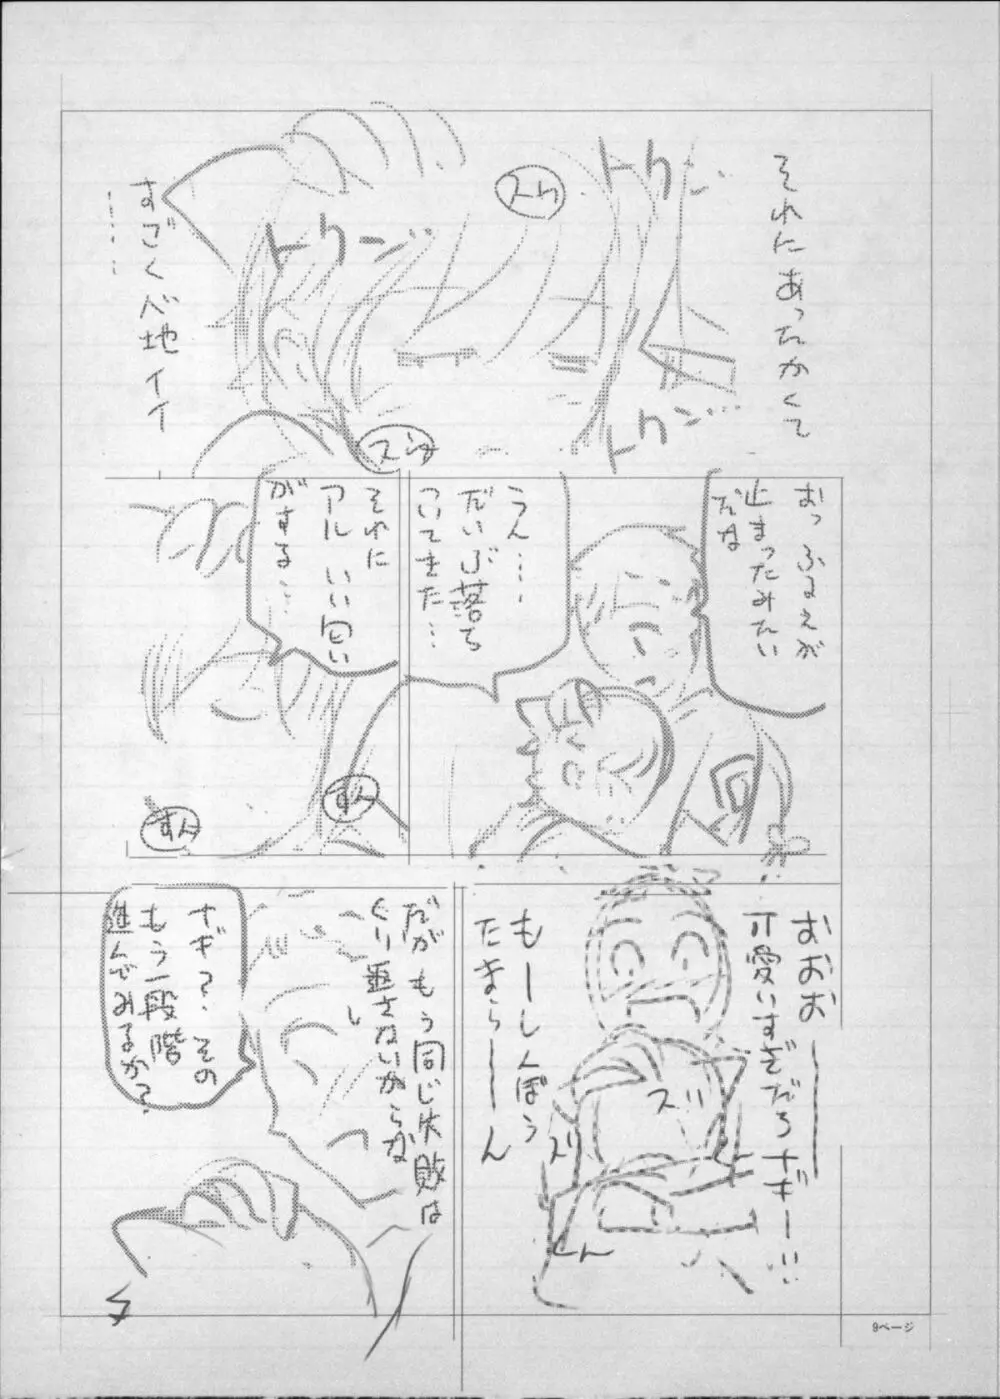 それにあったかくて
トクン
スウ
トクン
トクン
すごく心地イイ
……
おっ ふるえが
止まったみたい
だな
うん…
だいぶ落ち
ついてきた…
それに
アル いい匂い
がする…
すん
すん
おおお――
可愛いすぎだろナギー!!
もーしんぼう
たまら――ん
スリ
スリ
だがもう同じ失敗は
くり返さないからな
ナギ?そのもう一段階
進んでみるか?
9ページ